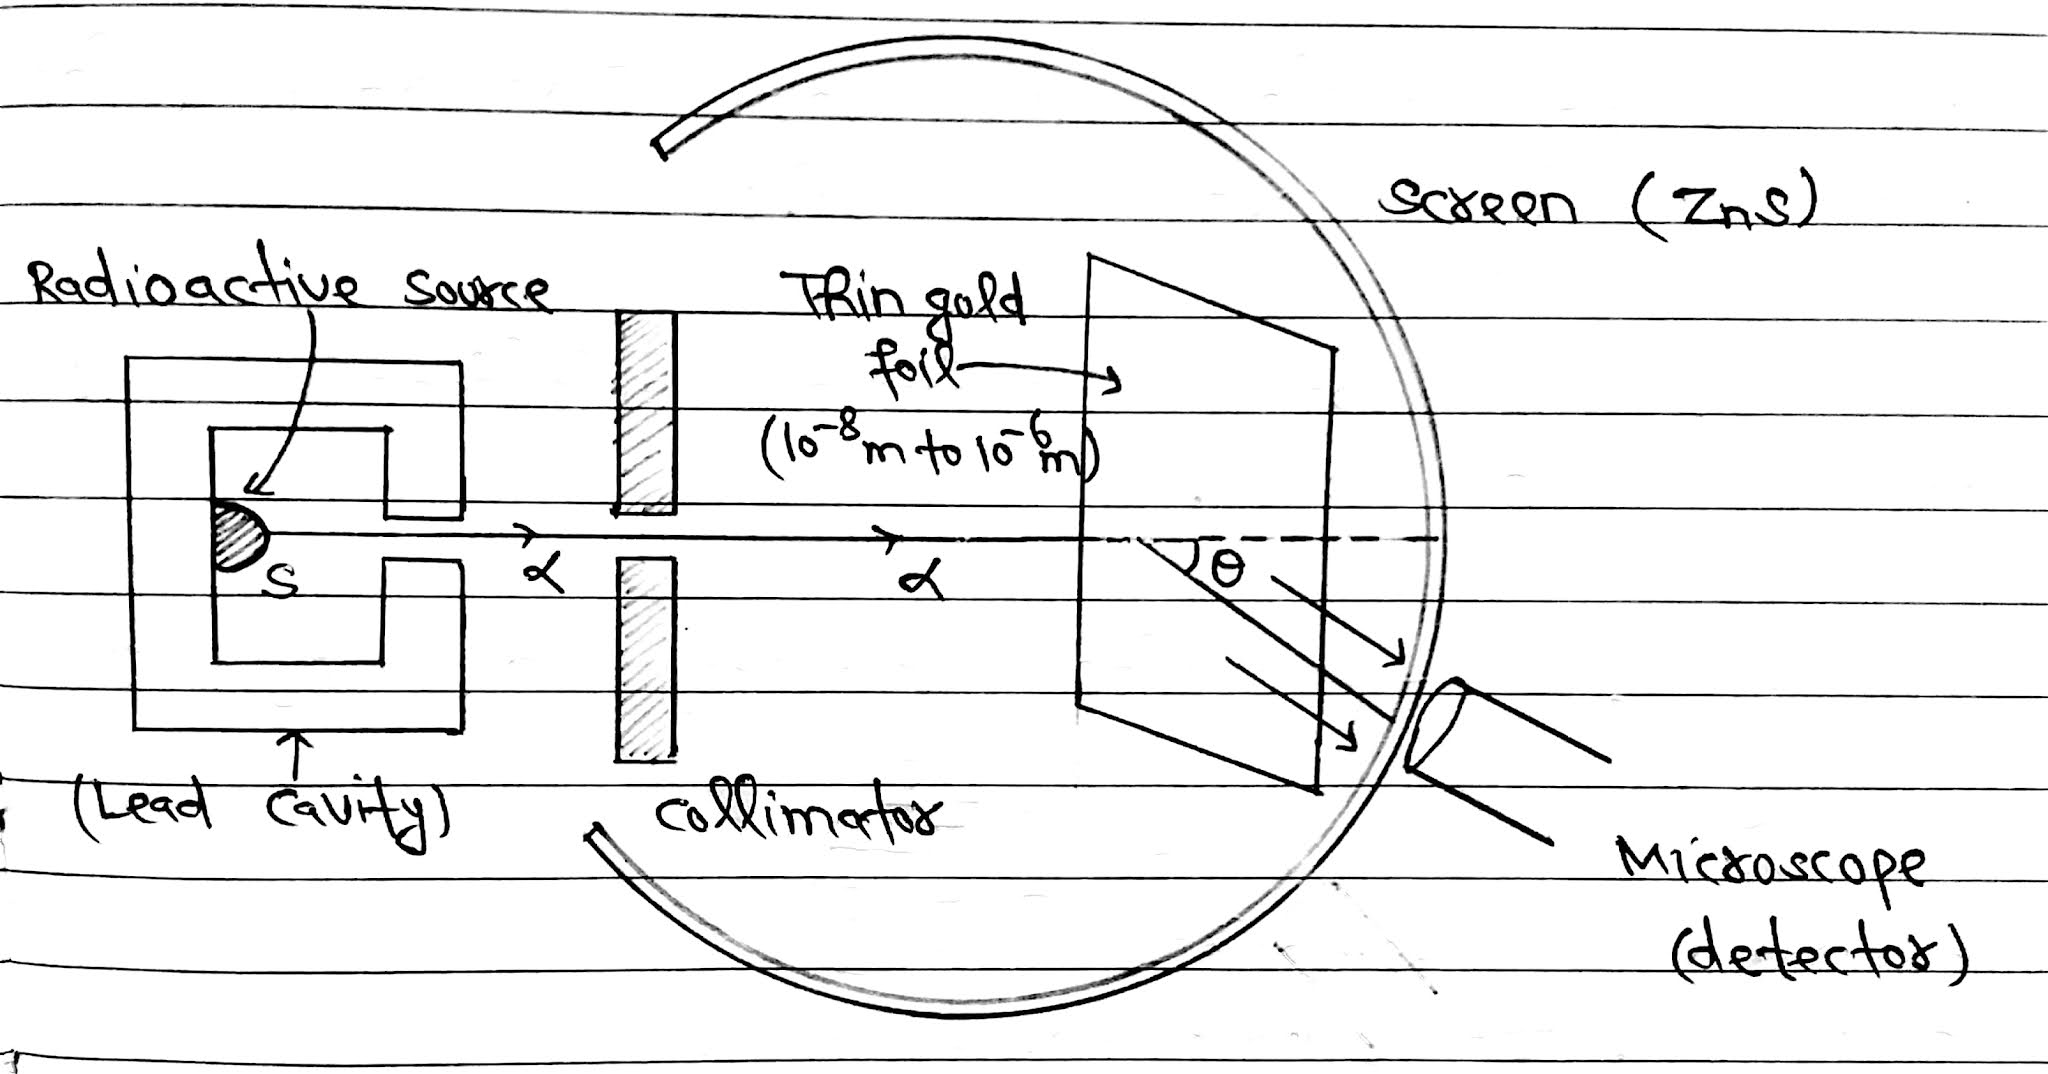 Screen (ZnS)
Radioactive source
Thin gold
foil
(10⁻⁸m to 10⁻⁶m)
S
α
α
θ
(Lead cavity)
collimator
Microscope
(detector)